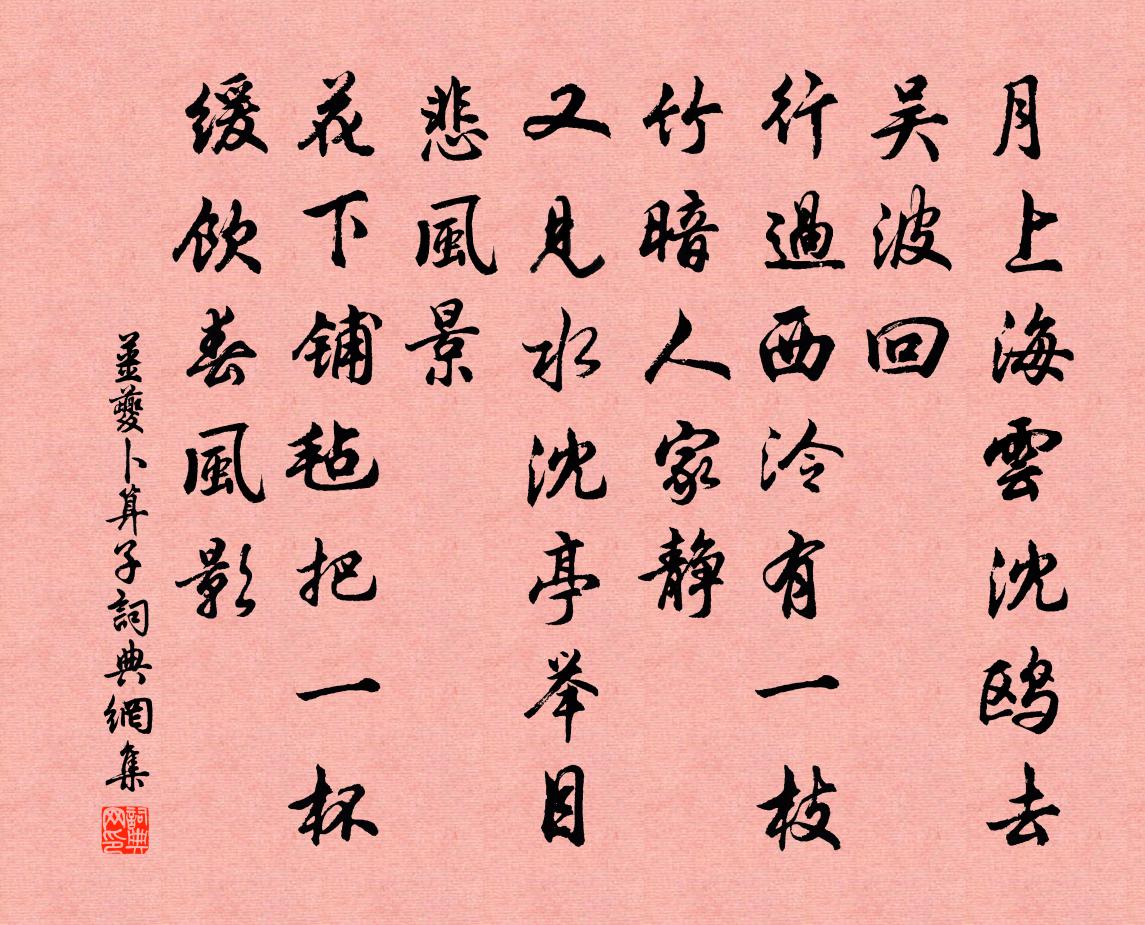 月上海雲沈鸥去
吴波回
行過西泠有一枝
竹暗人家静
又見水沈亭举目
悲風景
花下铺毡把一杯
缓飲春風影
薑夔卜算子詞典網集
詞典网印